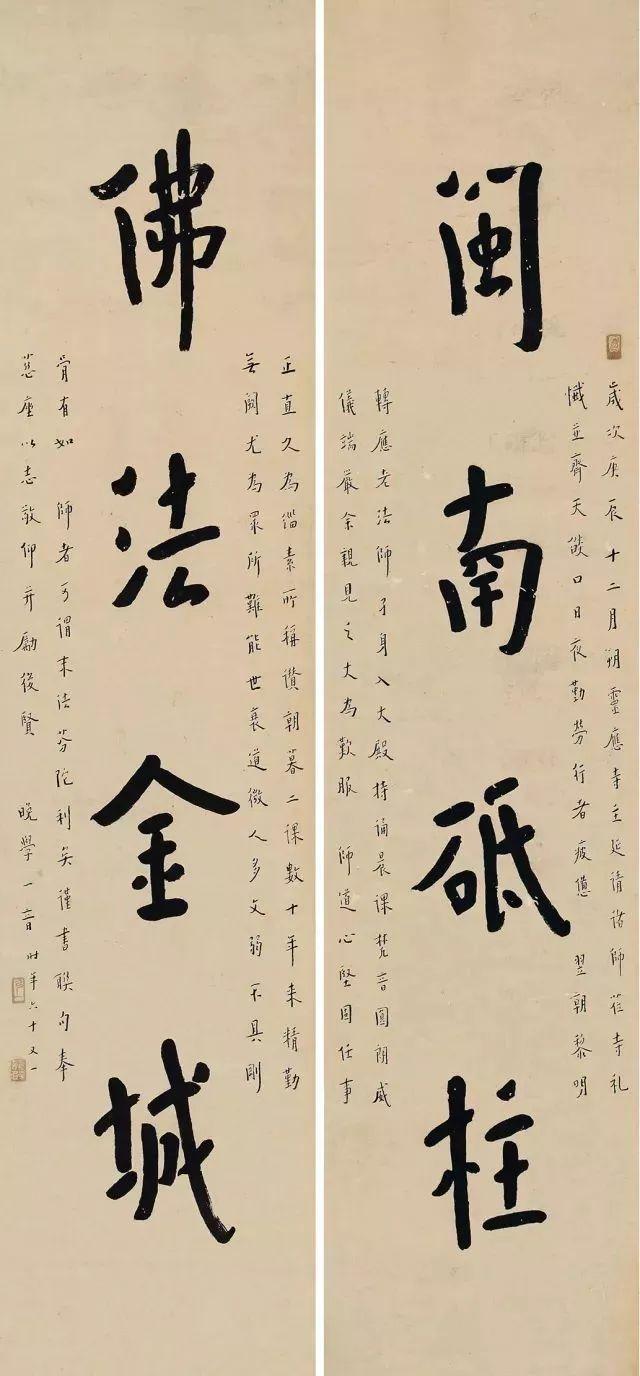 閩南砥柱
歲次庚辰十二月朔靈應寺主延請諸師莅寺礼
懺並齊天燄口日夜勤勞行者疲憊 翌朝黎明
轉應老法師孑身入大殿持誦晨課梵音圓朗威
儀端嚴余親見之大為歎服 師道心堅固任事
佛法金城
正直久為緇素所稱讚朝暮二課數十年来精勤
无闕尤為眾所難能世衰道微人多文弱不具剛
骨有如 師者可謂末法芬陀利矣謹書聯句奉
慈座以志敬仰并勵後賢 晚學一音 时年六十又一